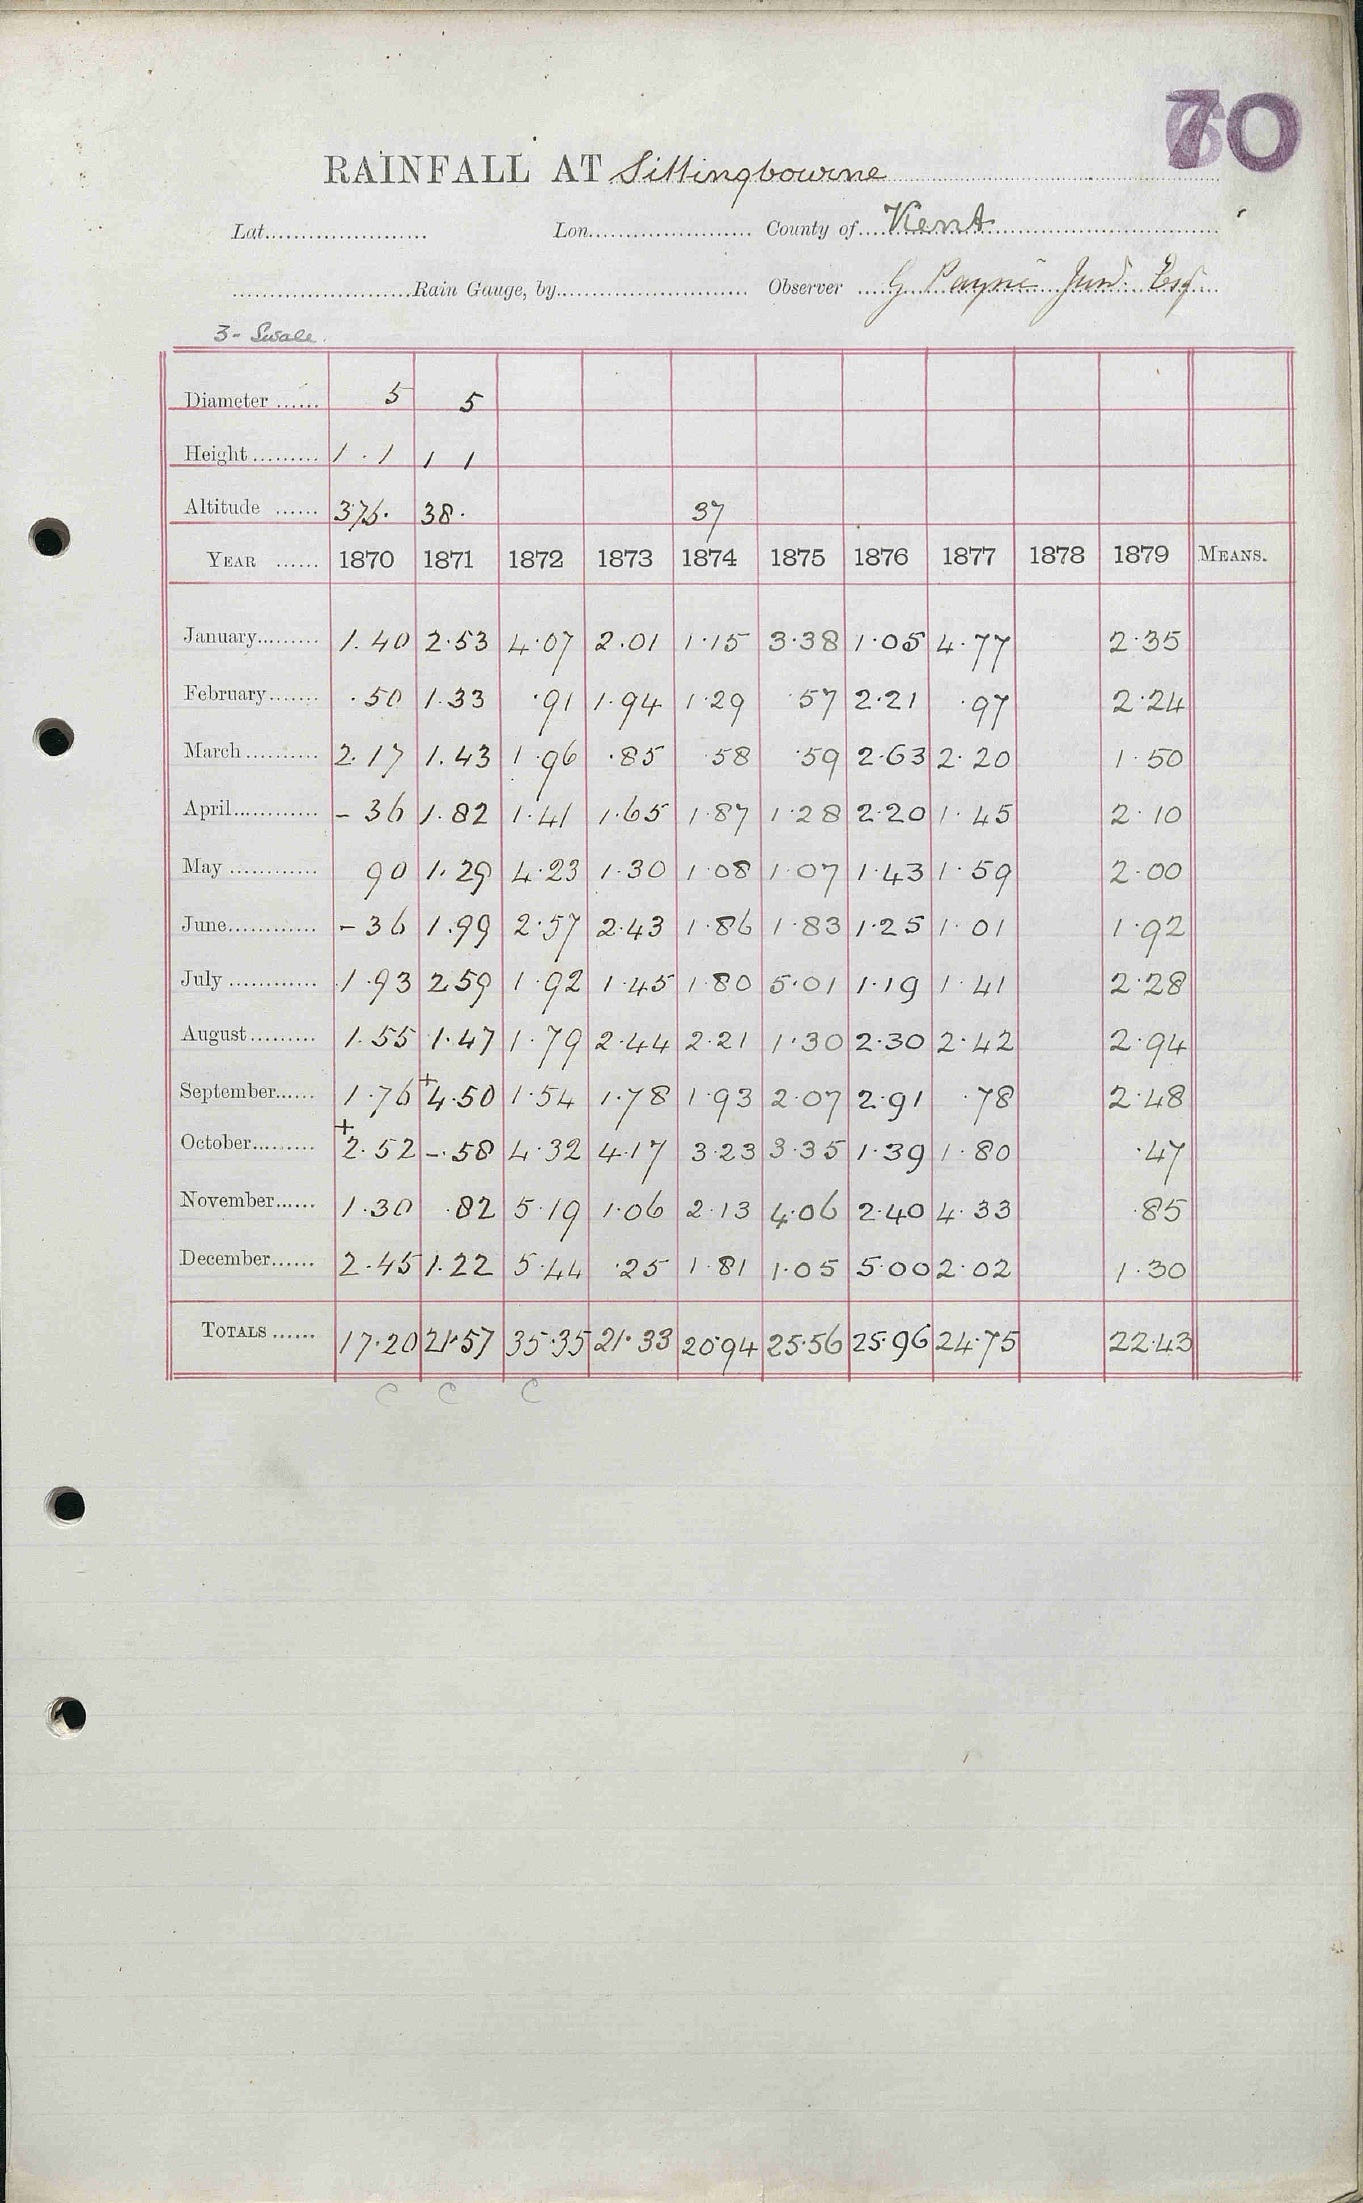 70
RAINFALL AT Sittingbourne
Lat. Lon. County of Kent
Rain Gauge, by Observer G Payne Junr. Esq
3 - Swale.
Diameter 5 5
Height 1 . 1 1 1
Altitude 38. 37
YEAR 1870 1871 1872 1873 1874 1875 1876 1877 1878 1879 MEANS.
January 1.40 2.53 4.07 2.01 1.15 3.38 1.05 4.77 2.35
February .50 1.33 .91 1.94 1.29 .57 2.21 .97 2.24
March 2.17 1.43 1.96 .85 .58 .59 2.63 2.20 1.50
April - 36 1.82 1.41 1.65 1.87 1.28 2.20 1.45 2.10
May 90 1.29 4.23 1.30 1.08 1.07 1.43 1.59 2.00
June - 36 1.99 2.57 2.43 1.86 1.83 1.25 1.01 1.92
July 1.93 2.59 1.92 1.45 1.80 5.01 1.19 1.41 2.28
August 1.55 1.47 1.79 2.44 2.21 1.30 2.30 2.42 2.94
September 1.76 +4.50 1.54 1.78 1.93 2.07 2.91 .78 2.48
October +2.52 -.58 4.32 4.17 3.23 3.35 1.39 1.80 .47
November 1.30 .82 5.19 1.06 2.13 4.06 2.40 4.33 .85
December 2.45 1.22 5.44 .25 1.81 1.05 5.00 2.02 1.30
TOTALS 17.20 21.57 35.35 21.33 20.94 25.56 25.96 24.75 22.43
C C C